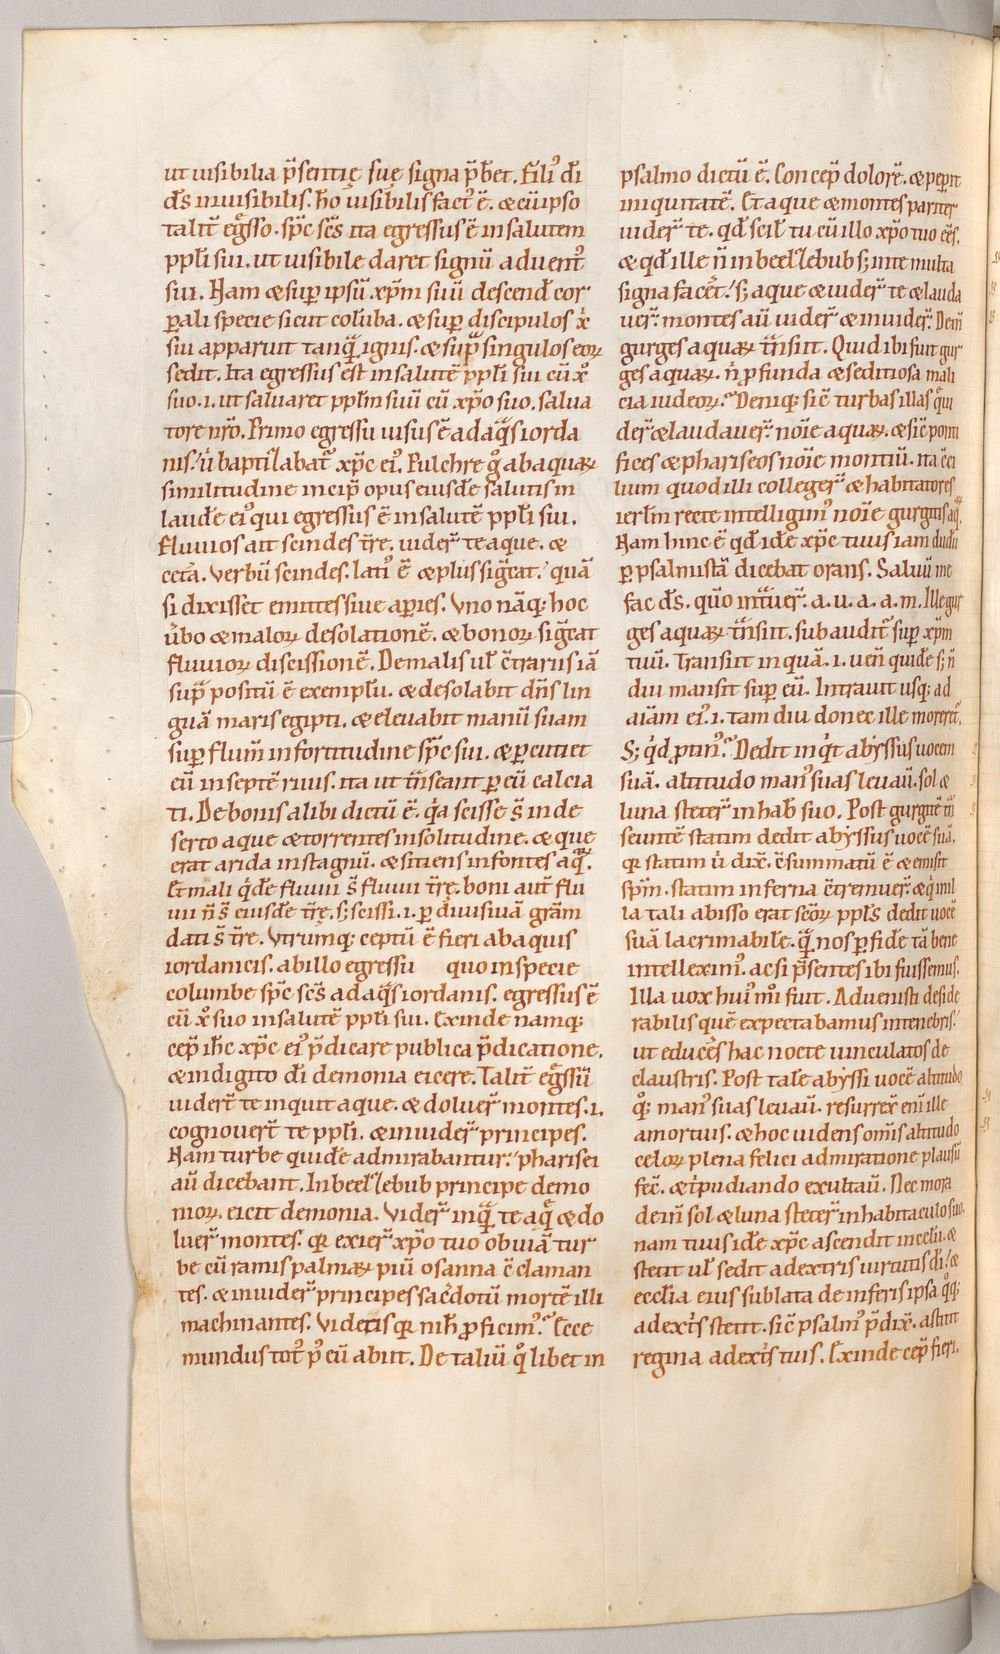 ut uisibilia p̃sentię suę signa p̃bet. Fili᷒ di̅
d̅s inuisibilis. ho̅ uisibilis fact᷒ ē. & cū ipso
talit̃ eg̃sso. sp̅c sc̅s ita egressus ē in salutem
pp̅li sui. ut uisibile daret signū aduent᷒
sui. Nam & sup̲ ipsū xp̅m suū descend̅ cor
p̲ali specie sicut colu̅ba. & sup̲ discipulos x̅i
sui apparuit tanquã ignis. & suprã singulos eoꝝ
sedit. Ita egressus est in salutē pp̅li sui cū x̅o
suo .i. ut saluaret pp̅lm suū cū xp̅o suo. salua
tore nr̅o. Primo egressu uisus ē ad aq̃s iorda
nis. u̅ baptizabat᷒ xp̅c ei᷒. Pulchre g̊ ab aquaꝝ
similitudine incip̅ opus eiusdē salutis in
laudē ei᷒ qui egressus ē in salutē pp̅li sui.
Fluuios ait scindes tr̅e. uider̅ te aque. &
cet̃a. Verbū scindes. lati᷒ ē & plus sig̃cat. quā
si dixisset emittes siue ap̲ies. Vno nāq; hoc
u̅bo & maloꝝ desolationē. & bonoꝝ sig̃cat
fluuioꝝ discissionē. De malis ul̅ c̅trariis iā
sup̃ positū ē exemplū. & desolabit dn̅s lin
guā maris egipti. & eleuabit manū suam
sup̲ flum̅ in fortitudine sp̅c sui. & p̲cutiet
eū in septē riuis. ita ut trãnseant p̲ eū calcia
ti. De bonis alibi dictū ē. q̇a scisse s̅ in de
serto aque & torrentes in solitudine. & que
erat arida in stagnū. & sitiens in fontes aq̅ꝝ.
Et mali q̇dē fluuii s̅ fluuii tr̅ę. boni aut̅ flu
uii n̅ s̅ eiusdē tr̅ę. s; scissi .i. p̲ diuisiuā gr̅am
dati s̅ tr̅e. Vtrumq; ceptū ē fieri ab aquis
iordanicis. ab illo egressu quo in specie
columbe sp̅c sc̅s ad aq̃s iordanis. egressus ē
cū x̅o suo in salutē pp̅li sui. Exinde namq;
cep̅ ih̅c xp̅c ei᷒ p̃dicare publica p̃dicatione.
& in digito di̅ demonia eicere. Talit̃ eg̃ssū
uider̅t te inquit aque. & doluer̅ montes .i.
cognouer̅t te pp̅li. & inuider̅ principes.
Nam turbe quidē admirabantur. pharisei
au̅ dicebant. In beelzebub principe demo
nioꝝ. eicit demonia. Vider̅ inq̃ te aq̃ & do
luer̅ montes. qꝛ exier̅ xp̅o tuo obuiā tur
be cū ramis palmaꝝ piū osanna c̅claman
tes. & inuider̅ principes sac̅dotū mortē illi
machinantes. Videtis qꝛ nih̅ p̲ficim᷒. Ecce
mundus tot᷒ p᷒ eū abiit. De taliū q̊libet in
psalmo dictū ē. Concep̅ dolorē. & pep̲it
iniquitatē. Et aque & montes pariter
uider̅ te. qd̅ scil̅ tu cū illo xp̅o tuo ee̅s.
& qd̅ ille n̅ in beelzebub s; in te multa
signa facer̅et. s; aque & uider̅ te & lauda
uer̅. montes au̅ uider̅ & inuider̅. Dein̅
gurges aquaꝝ trãnsiit. Quid ibi fiut gur
ges aquaꝝ. n̅ p̲funda & seditiosa mali
cia iudeoꝝ. Deniq; sic̅ turbas illas q̃ ui
der̅ & laudauer̅ noi̅e aquaꝝ. & sic̅ ponti
fices & phariseos noi̅e montiū. ita c̅ci
lium quod illi colleger̅ & habitatores
ierl̅m recte intelligim᷒ noi̅e gurgitis aq̅ꝝ.
Nam hinc ē qd̅ idē xp̅c tuus iam dudū
p̲ psalmistā dicebat orans. Saluū me
fac d̅s. qu̅o intrãuer̅. a. u. a. a. m. Ille gur
ges aquaꝝ trãnsiit. sub audit᷒ sup̲ xp̅m
tuū. Transiit inquā .i. uen̅ quidē s; n̅
diu mansit sup̲ eū. Intrauit usq; ad
aiam ei᷒ .i. tam diu donec ille moreret᷒.
S; q̇d p̲tin᷒. Dedit inq̇t abyssus uocem
suā. altitudo man᷒ suas leuau̅. sol &
luna steter̅ in hab̅ suo. Post gurgitē trãn
seuntē statim dedit abyssus uocē suā.
qꝛ statim u̅ dix̅. c̅summatū ē & emisit
sp̅m. statim inferna c̅tremuer̅. & q̇ in il
la tali abisso erat sc̅oꝝ pp̅ls dedit uocē
suā lacrimabilē. quã nos p̲ fidē tā bene
intellexim᷒. ac si p̃sentes ibi fuissemus.
Illa uox hui᷒mi̅ fuit. Aduenisti deside
rabilis quē expectabamus in tenebris.
ut educe̅s hac nocte uinculatos de
claustris. Post talē abyssi uocē altitudo
q̊q; man᷒ suas leuau̅. resurrex̅ eni̅ ille
a mortuis. & hoc uidens om̅is altitudo
celoꝝ plena felici admiratione plausū
fec̅. & tripudiando exultau̅. Nec mora
dein̅ sol & luna steter̅ in habitaculo suo.
nam tuus idē xp̅c ascendit in celū. &
stetit ul̅ sedit a dextris uirtutis di̅. &
eccl̅ia eius sublata de inferis ipsa q̊q;
a dextr̅is stetit. sic̅ psalm᷒ p̃dix̅. astitit
regina a dextr̅is tuis. Exinde cep̅ fieri.